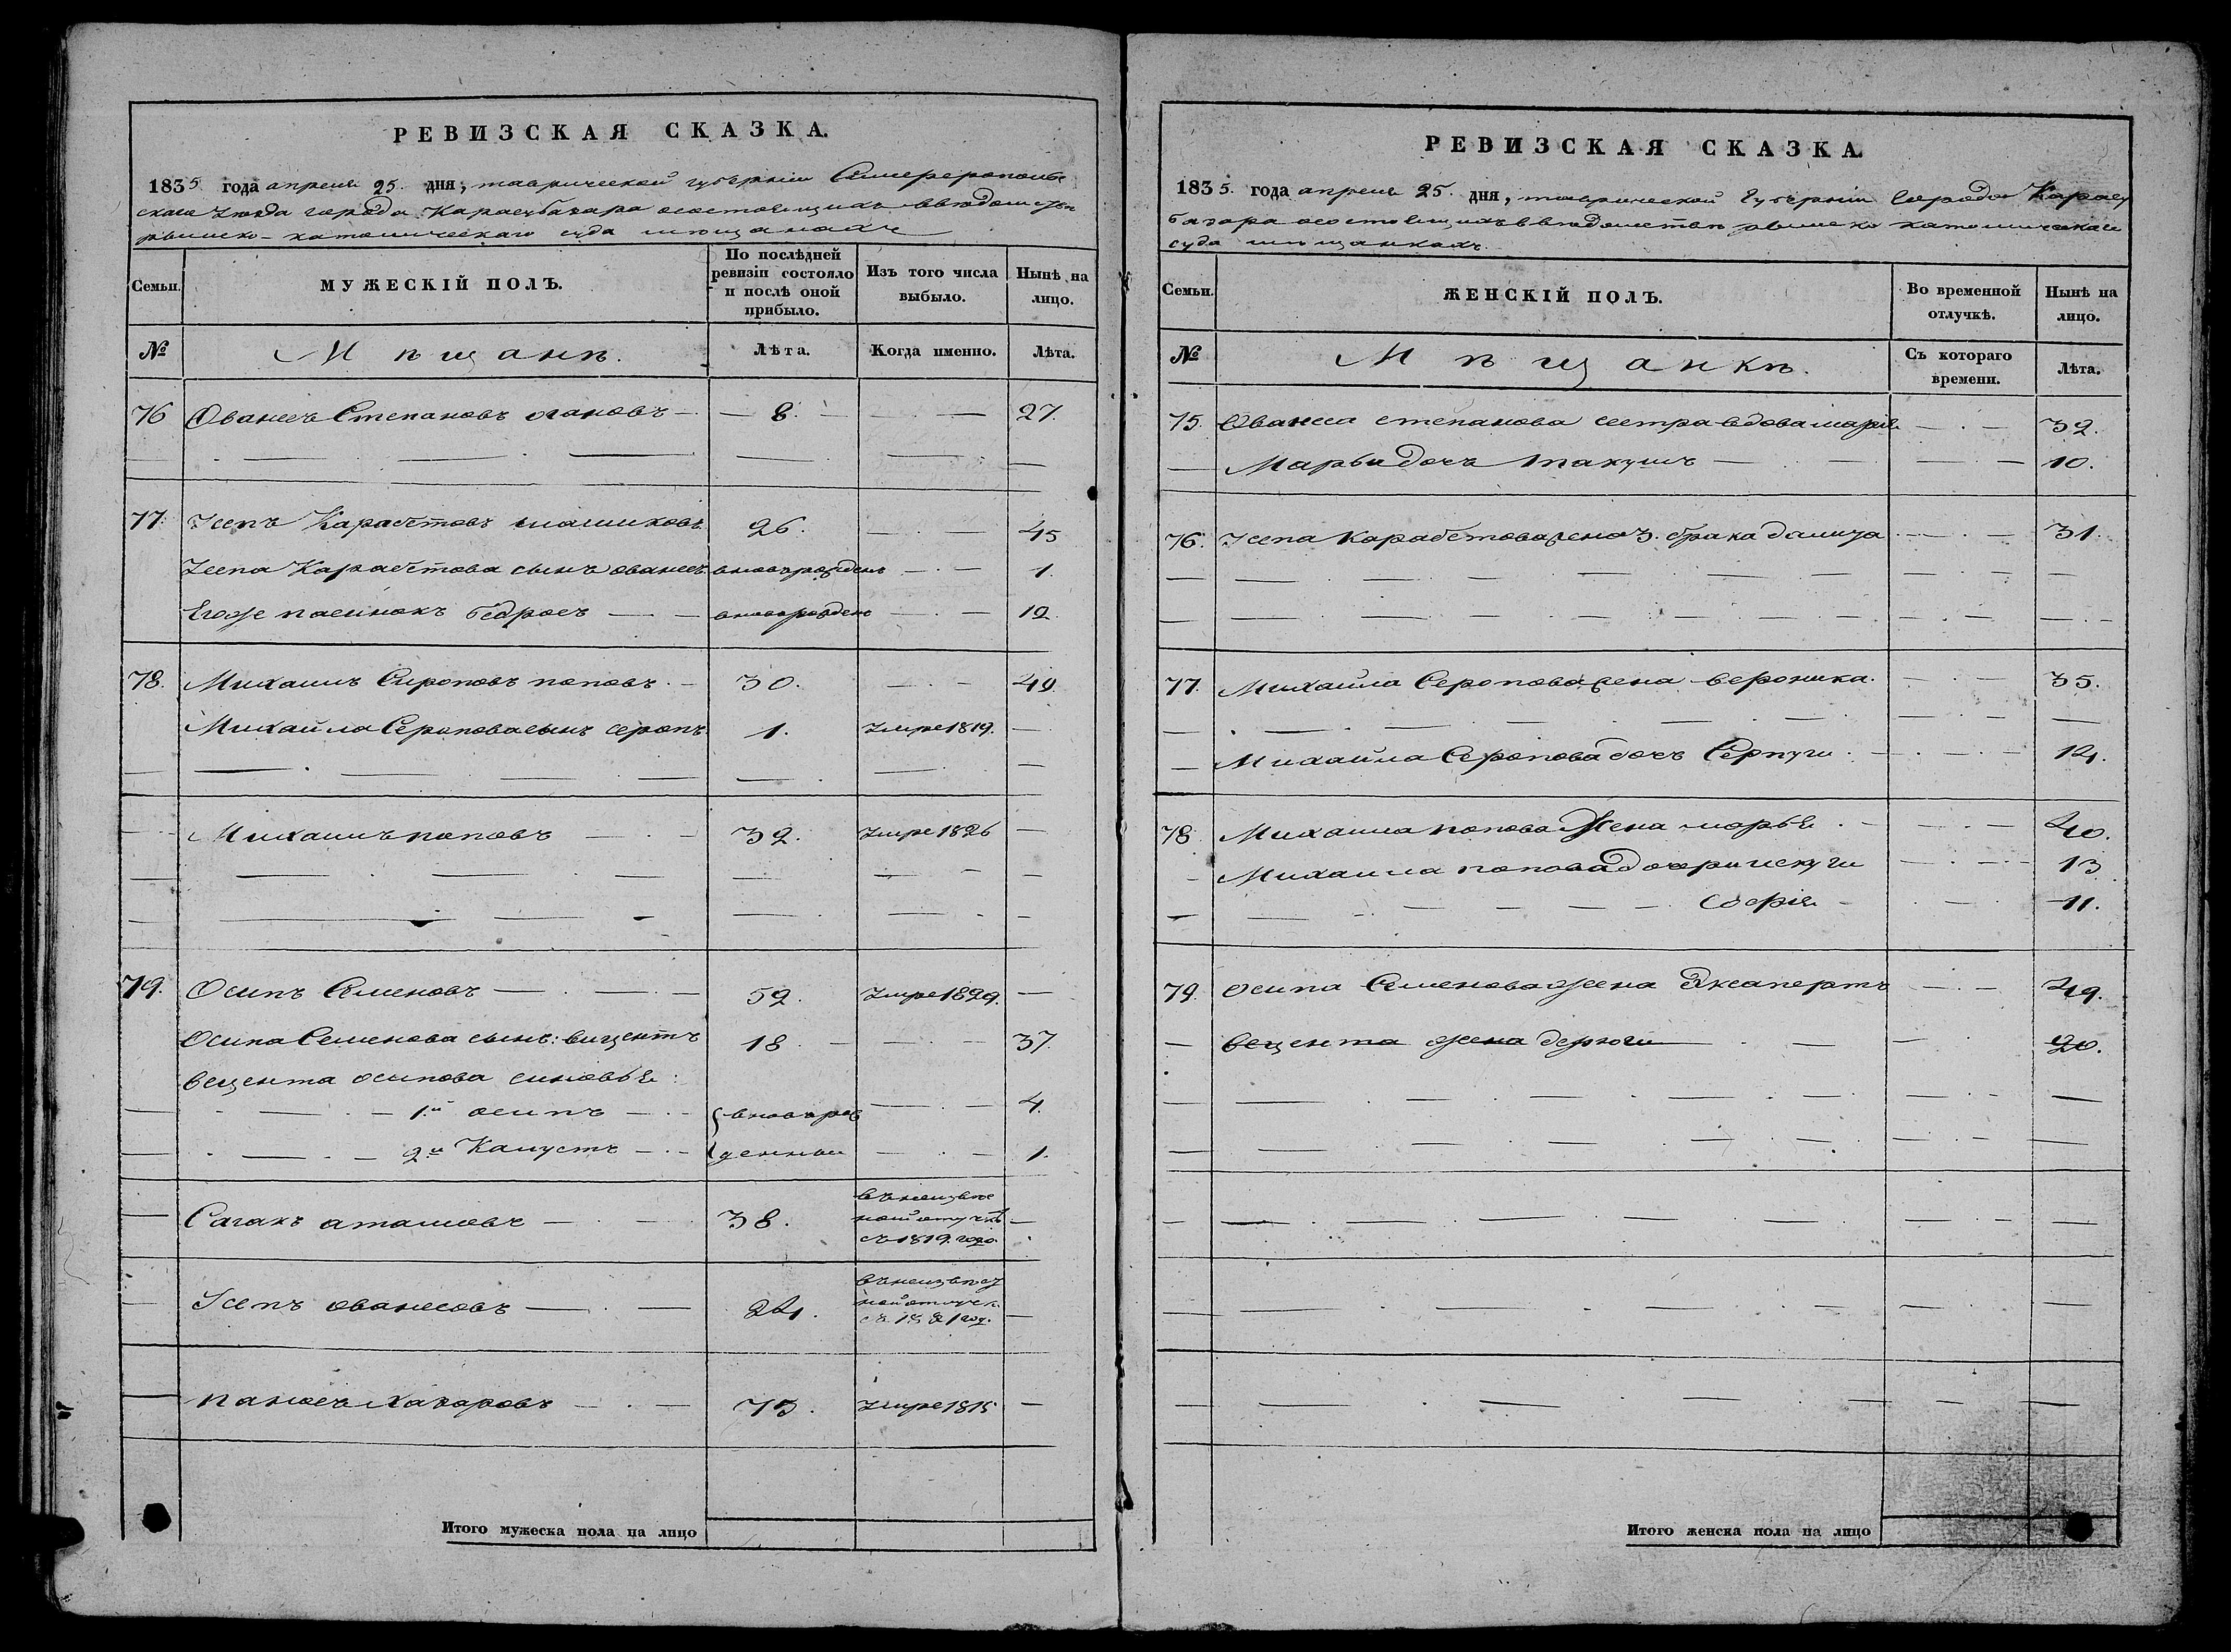 РЕВИЗСКАЯ СКАЗКА.
1835 года апреля 25. дня, таврической губерніи Симферополь
скаго уѣзда города Карасубазара осостоящихъ въ ведомстве
римско-католическаго суда мѣщанахъ
Семьи. МУЖЕСКІЙ ПОЛЪ. По послѣдней ревизіи состояло и послѣ оной прибыло. Изъ того числа выбыло. Нынѣ на лицо.
№ Мѣщанѣ. Лѣта. Когда именно. Лѣта.
76 Ованесъ Степановъ огановъ 8. 27.
77. Ісепъ Карабетовъ 26. 45
Ісепа Карабетова сынъ ованесъ вновьрожденъ 1.
Егоже пасинокъ бедросъ вноворожденъ 12.
78. Михаилъ Сероповъ поповъ 30. 49.
Михайла Серопова сынъ серопъ 1. Умре 1819.
Михаилъ поповъ 32. Умре 1826
79. Осипъ Семеновъ 52. Умре 1829.
Осипа Семенова сынъ: вицентъ 18 37.
вецента осипова синовья:
1й осипъ вноворож 4.
2й Капустъ денныи 1.
Сагакъ 38. въ неизвес
ной отлучке
съ 1819. года
Ісепъ ованесовъ 24. въ неизвес
ной отлучк
съ 1821 год.
паносъ Хазаровъ 73. Умре 1815
Итого мужеска пола на лицо
РЕВИЗСКАЯ СКАЗКА.
1835. года апреля 25. дня, таврической Губерніи Города Карасу
базара осостоящихъ въ ведомстве римско католическаго
суда мѣщанкахъ.
Семьи. ЖЕНСКІЙ ПОЛЪ. Во временной отлучкѣ. Нынѣ на лицо.
№ Мѣщанкѣ. Съ котораго времени. Лѣта.
75. Ованеса степанова сестра вдова марія 32.
Марьи дочь такушъ 10.
76. Ісепа Карабетова жена 3. брака 31.
77. Михайла Серопова жена вероника. 35.
Михайла Серопова дочь Серпуги 14.
78. Михаила попова Жена марья 40.
Михаила попова дочери искуги 13
Софія 11.
79. осипа Семенова жена Эксаперть 49.
вецента жена 20.
Итого женска пола на лицо